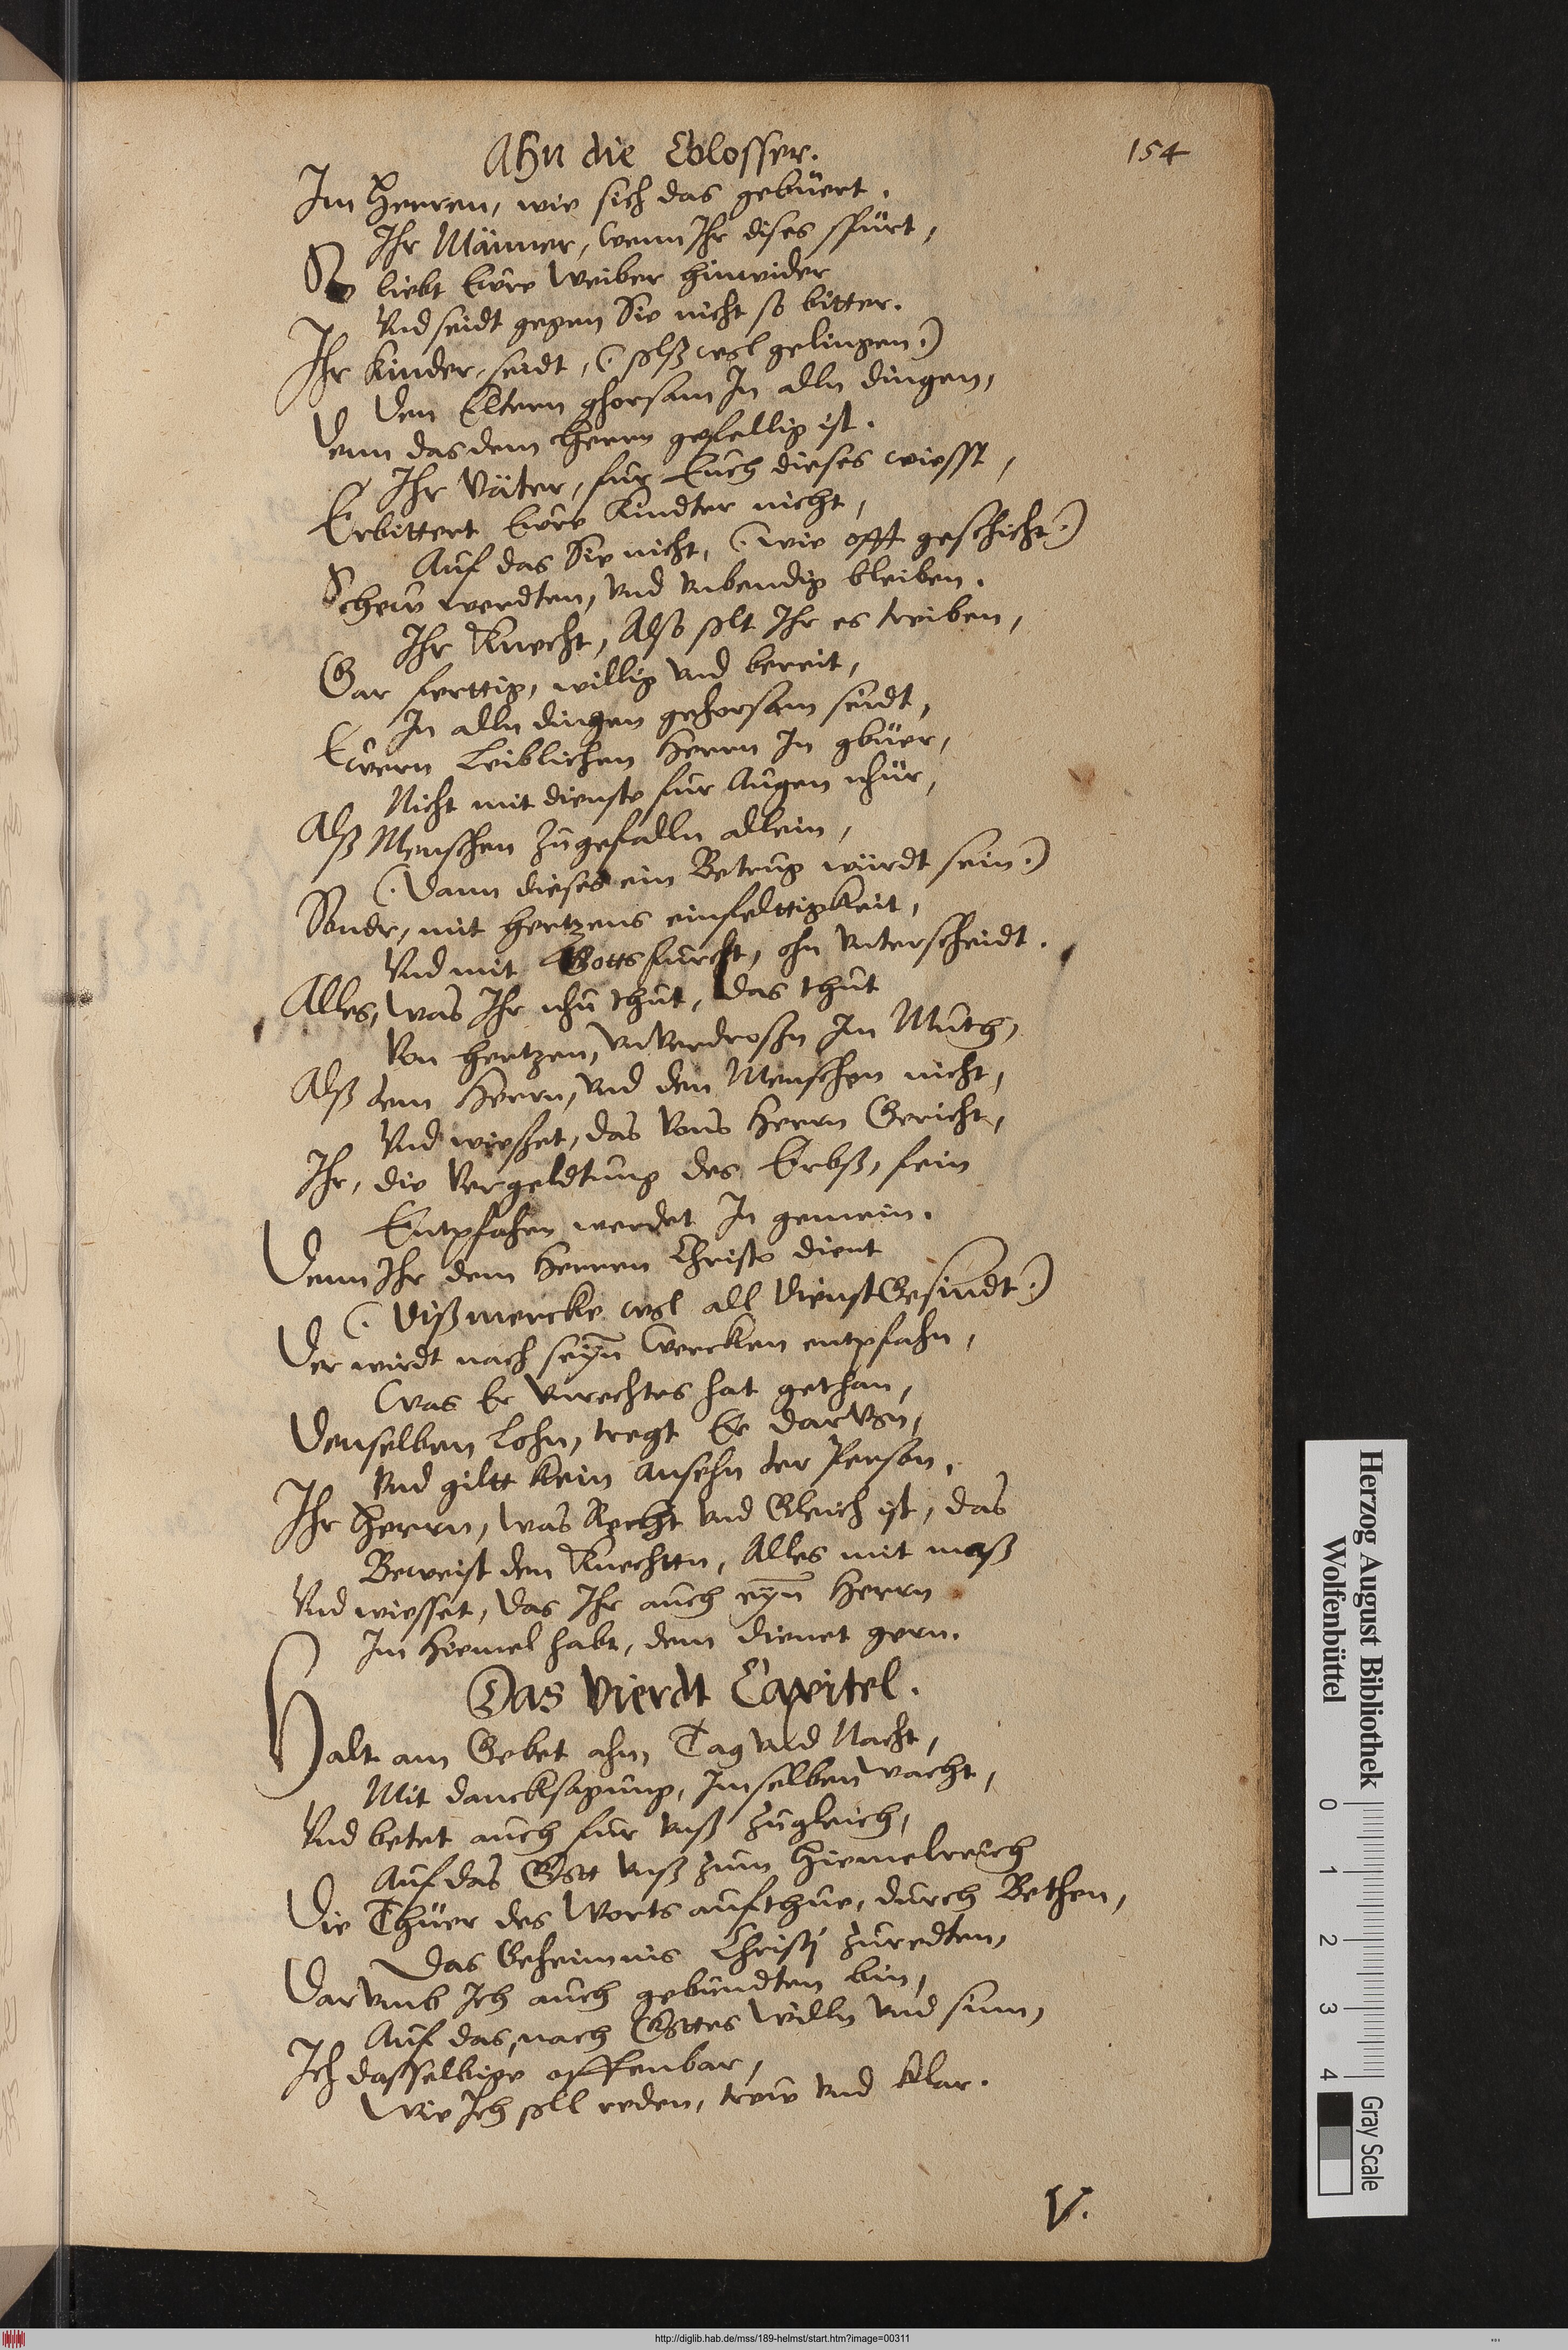 Ahn die Colosser.
154
Im Herren, wie sich das gebüert.
Ihr Männer, wenn Ihr dises spürt,
So liebt Ewre Weiber hinwider
Vnd seidt gegen Sie nicht so bitter.
Ihr Kinder, seidt, (. solß wol gelingen.)
Den Eltern ghorsam In alln dingen,
Denn das dem Herrn gefellig ist.
Ihr Väter, für Euch dieses wiesst,
Erbittert Ewre Kindter nicht,
Auf das Sie nicht, (. wie offt geschicht.)
Schew werdten, vnd vnbendig bleiben.
Ihr Knecht, Also solt Ihr es treiben,
Gar ferttig, willig vnd bereit,
In alln dingen gehorsam seidt,
Ewern Leiblichen Herrn In gbüer,
Nicht mit dienste fur Augen nhür,
Alß Menschen zugefalln allein,
(. Dann dieses ein Betrug würdt sein.)
Sondr, mit Hertzens einfelttigkeit,
Vnd mit Gottsfurcht, ohn vnterscheidt.
Alles, was Ihr nhu thut, das thut
Von Hertzen, vnverdroßn Im Muth,
Alß dem Herrn, vnd den Menschen nicht,
Vnd wießet, das vons Herrn Gericht,
Ihr, die Vergeldtung des Erbß, fein
Entpfahen werdet In gemein.
Denn Ihr dem Herren Christo dient
(. Diß mercke wol all DienstGesindt.)
Der wirdt nach seyn̄ Wercken entpfahn,
Was Er Vnrechtes hat gethan,
Denselben Lohn, tregt Er darvon,
Vnd giltt kein Ansehn der Person.
Ihr Herrn, was Recht vnd Gleich ist, das
Beweist den Knechttn, Alles mit maß
Vnd wiesset, das Ihr auch eyn̄ Herrn
Im Hiemel habt, dem dienet gern.
Das Vierdt Capitel.
Halt am Gebet ahn, Tag vnd Nacht,
Mit dancksagung, Imselben wacht,
Vnd betet auch fur vnß zugleich,
Auf das Gott vnß zum Hiemelreich
Die Thüer des Worts aufthue, durch Bethen,
Das Geheimnis Christj zuredten,
Darvmb Ich auch gebundten bin,
Auf das, nach Gottes Willn vnd sinn,
Ich dasselbige offenbar,
Wie Ich soll reden, trew vnd klar.
V.
Herzog August Bibliothek
Wolfenbüttel
0 1 2 3 4
Gray Scale
http://diglib.hab.de/mss/189-helmst/start.htm?image=00311